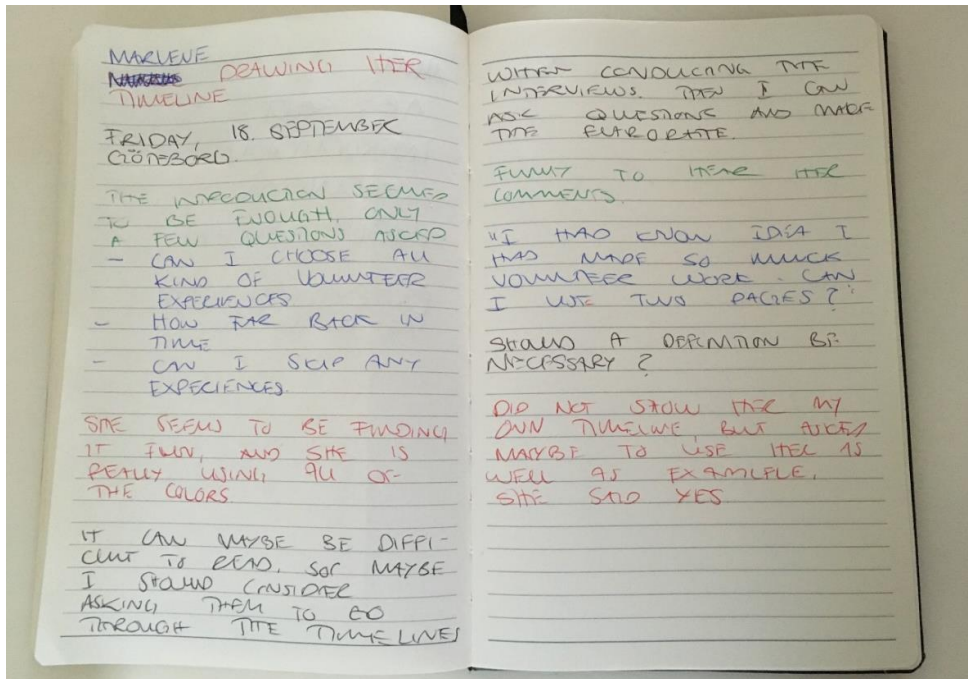 MARLENE
DRAWING HER
TIMELINE
FRIDAY, 18. SEPTEMBER
GÖTEBORG.
THE INTRODUCTION SEEMED
TO BE ENOUGH, ONLY
A FEW QUESTIONS ASKED
- CAN I CHOOSE ALL
KIND OF VOLUNTEER
EXPERIENCES
- HOW FAR BACK IN
TIME
- CAN I SKIP ANY
EXPECIENCES.
SHE SEEMS TO BE FINDING
IT FUN, AND SHE IS
REALLY USING ALL OF
THE COLORS
IT CAN MAYBE BE DIFFI-
CULT TO READ, SO MAYBE
I SHOULD CONSIDER
ASKING THEM TO GO
THROUGH THE TIMELINES
WHEN CONDUCTING THE
INTERVIEWS. THEN I CAN
ASK QUESTIONS AND MAKE
THE ELABORATE.
FUNNY TO HEAR HER
COMMENTS.
"I HAD KNOW IDEA I
HAD MADE SO MUCH
VOLUNTEER WORK. CAN
I USE TWO PAGES?"
SHOULD A DEFINITION BE
NECESSARY?
DID NOT SHOW HER MY
OWN TIMELINE, BUT ASKED
MAYBE TO USE HER AS
WELL AS EXAMPLE,
SHE SAID YES